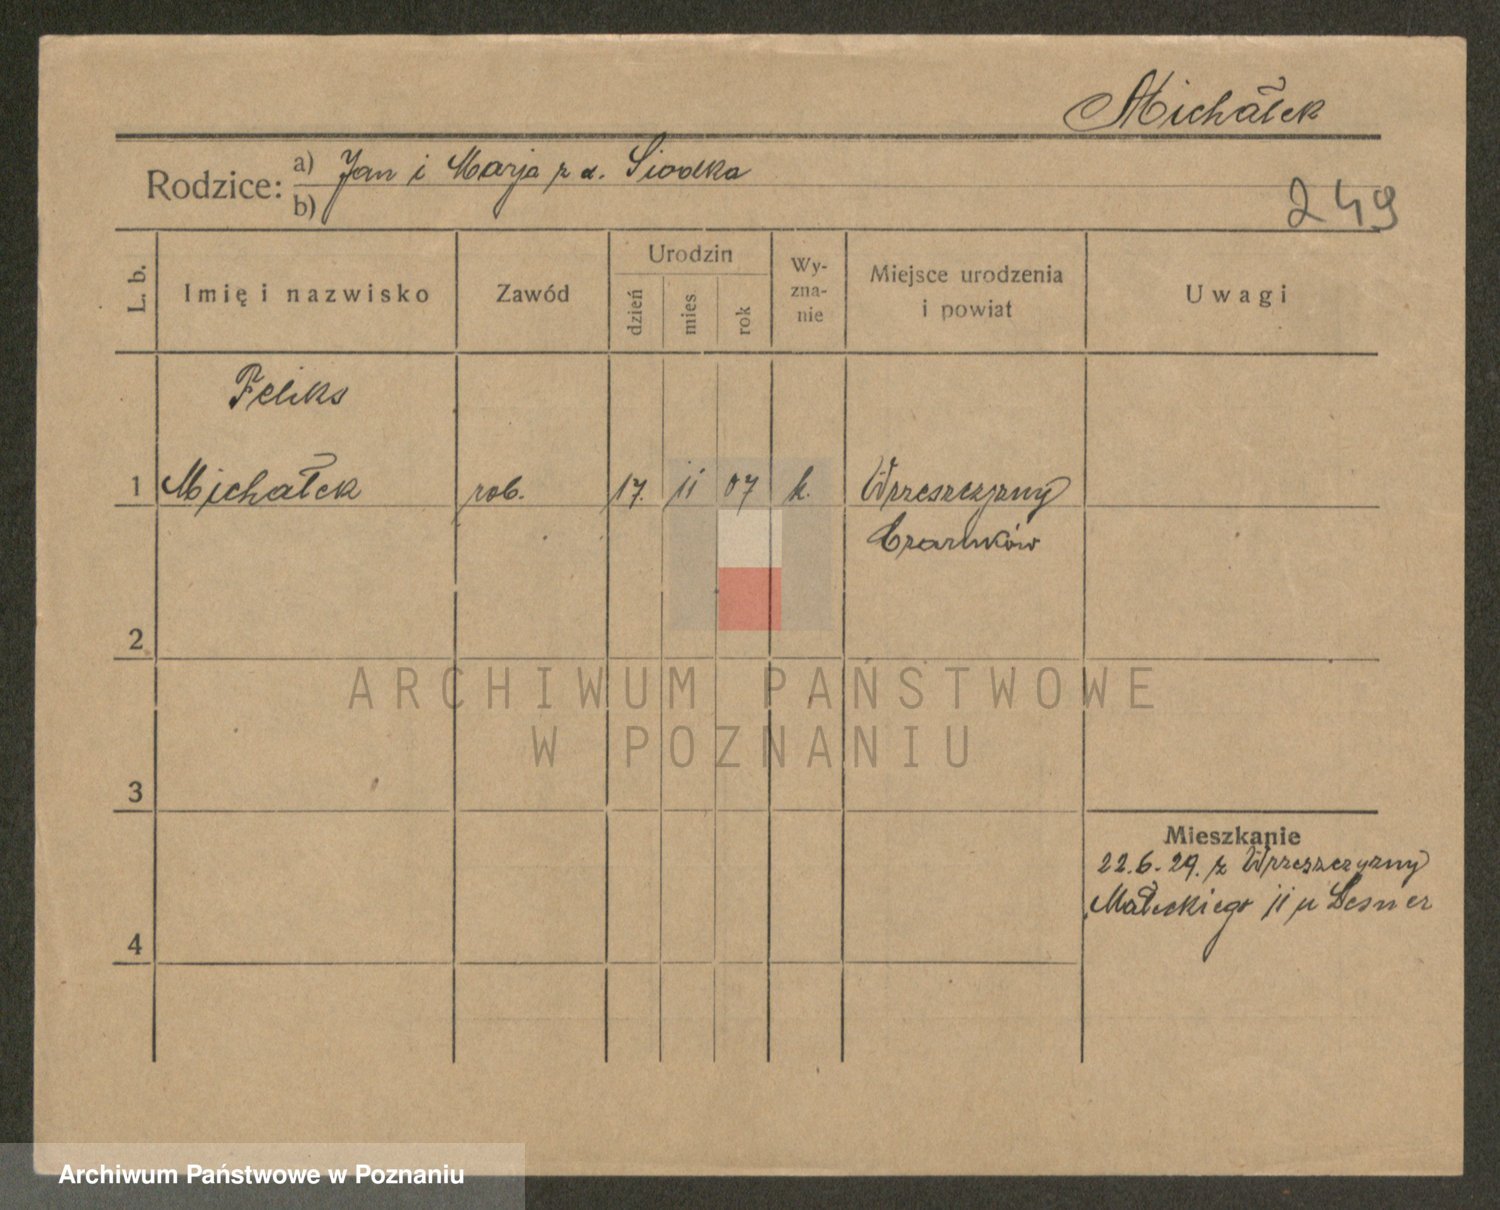 Michałek
Rodzice: a) Jan i Marja z d. Siodka
b)
249
L. b.
Imię i nazwisko
Zawód
Urodzin
dzień
mies
rok
Wy-
zna-
nie
Miejsce urodzenia
i powiat
Uwagi
Feliks
1 Michałek rob. 17. 11 07 k. Wrzeszczyny
Czarnków
2
3
4
Mieszkanie
22.6.29. z Wrzeszczyny
Małeckiego 11 u Lesner
ARCHIWUM PAŃSTWOWE
W POZNANIU
Archiwum Państwowe w Poznaniu